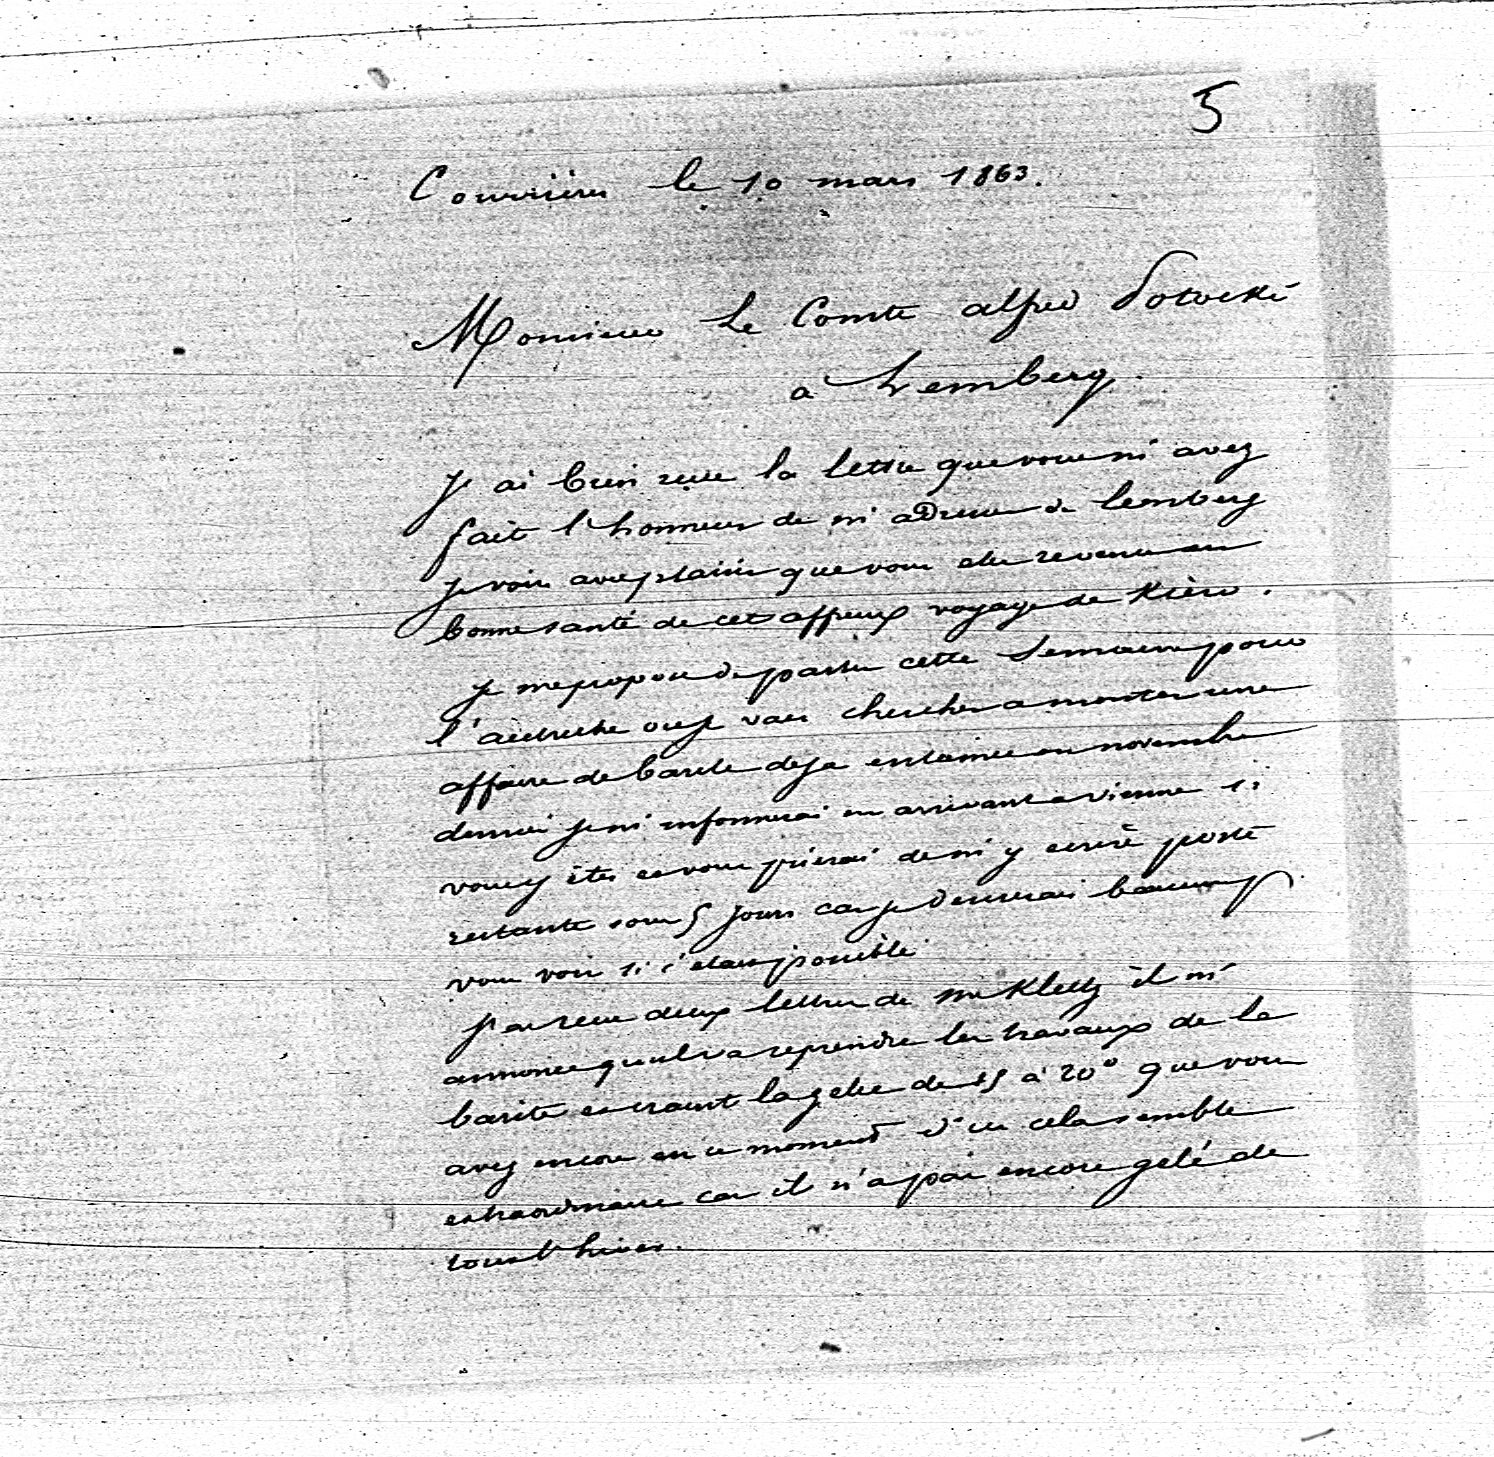 5
Courrières le 10 mars 1863.
Monsieur Le Comte alfred Potocki
a Lemberg.
J ai bien reçue la lettre que vous m' avez
fait l'honneur de m' adresser de lemberg
je vois avec plaisir que vous etes revenu en
bonne santé de cet affreux voyage de Kièw.
Je me propose de partir cette Semaine pour
l'autriche ou je vais chercher a monter une
affaire de barite deja entamée en novembre
dernier je m' informerai en arrivant a vienne si
vous y êtes et vous prierai de m' y ecrire poste
restante sous 5 jours car je desirerais beaucoup
vous voir si c'etait possible
J'ai reçue deux lettres de mr Kletz il m'
annonce qu'il va reprendre les travaux de la
barite et craint la gelée de 15 à 20° que vous
avez encore en ce moment d'ici cela semble
extraordinaire car il n'a pas encore gelé de
tout l'hiver.